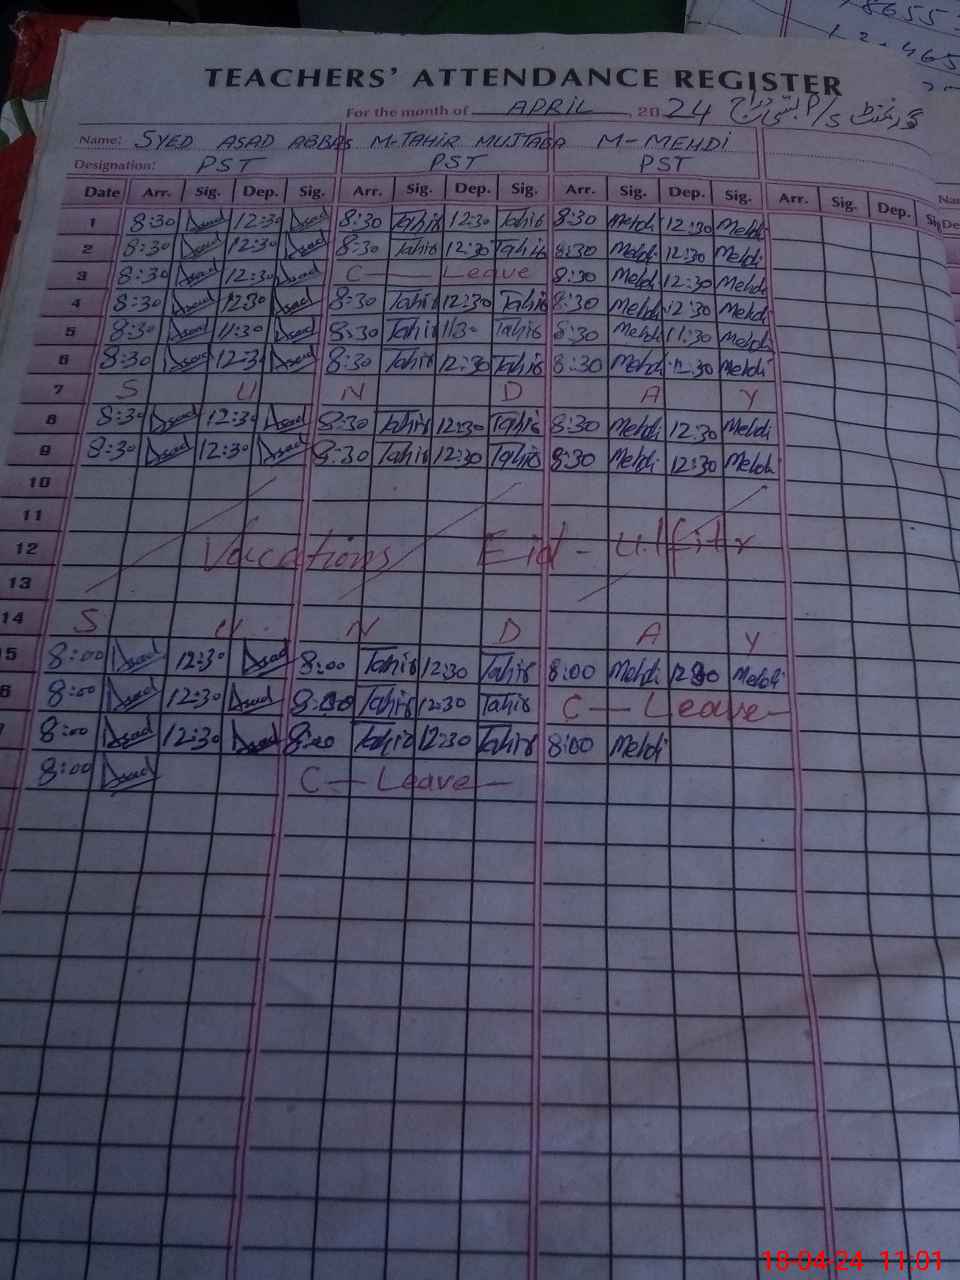 8655
465
TEACHERS' ATTENDANCE REGISTER
For the month of APRIL, 2024
Name: SYED ASAD ABBAS M-TAHIR MUJTABA M-MEHDI
Designation: PST PST PST
Date Arr. Sig. Dep. Sig. Arr. Sig. Dep. Sig. Arr. Sig. Dep. Sig. Arr. Sig. Dep. Sig
1 8:30 Asad 12:30 Asad 8:30 Tahir 12:30 Tahir 8:30 Mehdi 12:30 Mehdi
2 8:30 Asad 12:30 Asad 8:30 Tahir 12:30 Tahir 8:30 Mehdi 12:30 Mehdi
3 8:30 Asad 12:30 Asad C — Leave 8:30 Mehdi 12:30 Mehdi
4 8:30 Asad 12:30 Asad 8:30 Tahir 12:30 Tahir 8:30 Mehdi 12:30 Mehdi
5 8:30 Asad 11:30 Asad 8:30 Tahir 11:30 Tahir 8:30 Mehdi 11:30 Mehdi
6 8:30 Asad 12:30 Asad 8:30 Tahir 12:30 Tahir 8:30 Mehdi 12:30 Mehdi
7 S U N D A Y
8 8:30 Asad 12:30 Asad 8:30 Tahir 12:30 Tahir 8:30 Mehdi 12:30 Mehdi
9 8:30 Asad 12:30 Asad 8:30 Tahir 12:30 Tahir 8:30 Mehdi 12:30 Mehdi
10
11
12 Vacations Eid-ulfitr
13
14 S U N D A Y
5 8:00 Asad 12:30 Asad 8:00 Tahir 12:30 Tahir 8:00 Mehdi 12:30 Mehdi
6 8:00 Asad 12:30 Asad 8:00 Tahir 12:30 Tahir C — Leave —
7 8:00 Asad 12:30 Asad 8:00 Tahir 12:30 Tahir 8:00 Mehdi
8:00 Asad C — Leave —
18-04-24 11:01